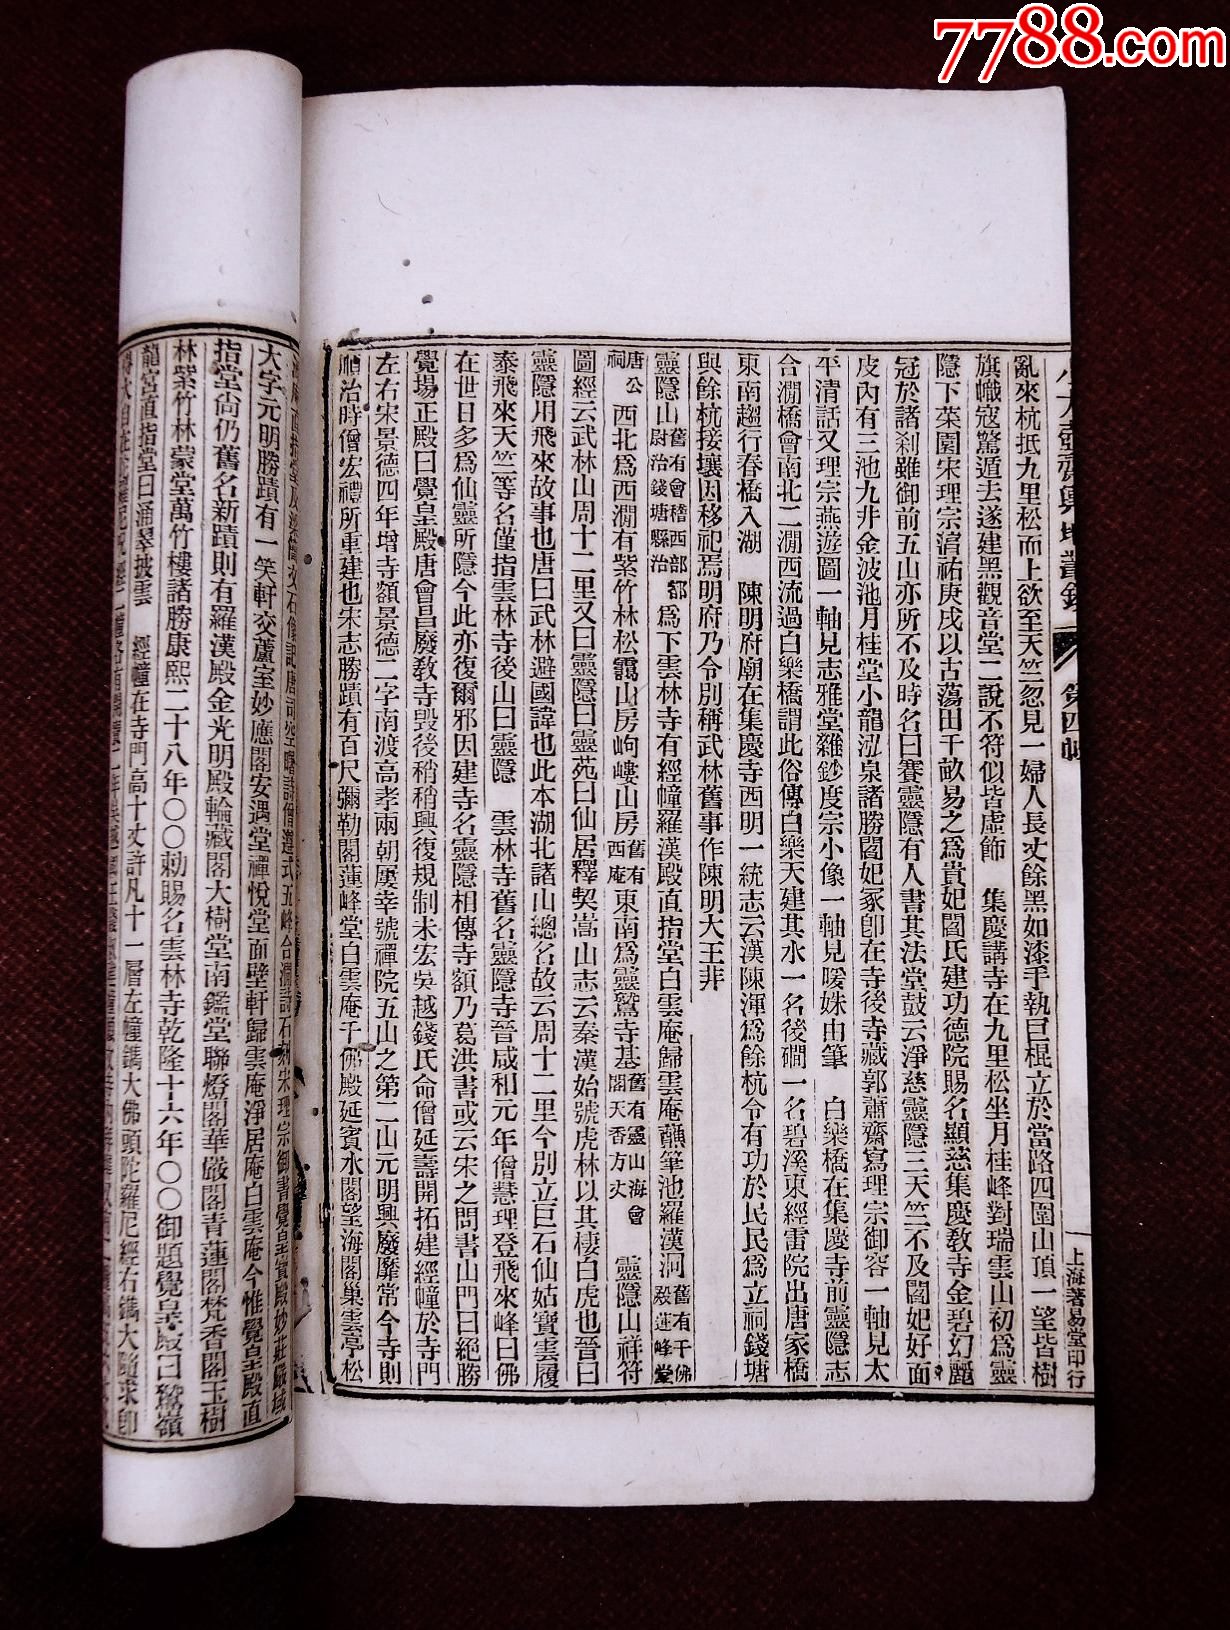 7788.com
小方壺齋輿地叢鈔 第四帙 上海著易堂印行
亂來杭抵九里松而上欲至天竺忽見一婦人長丈餘黑如漆手執巨棍立於當路四圍山頂一望皆樹
旗幟寇驚遁去遂建黑觀音堂二說不符似皆虛飾 集慶講寺在九里松坐月桂峰對瑞雲山初為靈
隱下菜園宋理宗淳祐庚戌以古蕩田千畝易之為貴妃閻氏建功德院賜名顯慈集慶教寺金碧幻麗
冠於諸刹雖御前五山亦所不及時名曰賽靈隱有人書其法堂鼓云淨慈靈隱三天竺不及閻妃好面
皮內有三池九井金波池月桂堂小龍泓泉諸勝閻妃冢卽在寺後寺藏郭蕭齋寫理宗御容一軸見太
平清話又理宗燕遊圖一軸見志雅堂雜鈔度宗小像一軸見暖姝由筆 白樂橋在集慶寺前靈隱志
合澗橋會南北二澗西流過白樂橋謂此俗傳白樂天建其水一名後磵一名碧溪東經雷院出唐家橋
東南趨行春橋入湖 陳明府廟在集慶寺西明一統志云漢陳渾為餘杭令有功於民民為立祠錢塘
與餘杭接壤因移祀焉明府乃令別稱武林舊事作陳明大王非
靈隱山舊有會稽西部都尉治錢塘縣治為下雲林寺有經幢羅漢殿直指堂白雲庵歸雲庵蘸筆池羅漢洞舊有千佛殿蓮峰堂
唐公祠西北為西澗有紫竹林松靄山房岣嶁山房舊有西庵東南為靈鷲寺基舊有靈山海會閣天香方丈 靈隱山祥符
圖經云武林山周十二里又曰靈隱曰靈苑曰仙居釋契嵩山志云秦漢始號虎林以其棲白虎也晉曰
靈隱用飛來故事也唐曰武林避國諱也此本湖北諸山總名故云周十二里今別立巨石仙姑寶雲履
泰飛來天竺等名僅指雲林寺後山曰靈隱 雲林寺舊名靈隱寺晉咸和元年僧慧理登飛來峰曰佛
在世日多為仙靈所隱今此亦復爾邪因建寺名靈隱相傳寺額乃葛洪書或云宋之問書山門曰絕勝
覺場正殿曰覺皇殿唐會昌廢教寺毀後稍稍興復規制未宏吳越錢氏命僧延壽開拓建經幢於寺門
左右宋景德四年增寺額景德二字南渡高孝兩朝屢幸號禪院五山之第二山元明興廢靡常今寺則
順治時僧宏禮所重建也宋志勝蹟有百尺彌勒閣蓮峰堂白雲庵千佛殿延賓水閣望海閣巢雲亭松
大字元明勝蹟有一笑軒交蘆室妙應閣安遇堂禪悅堂面壁軒歸雲庵淨居庵白雲庵今惟覺皇殿直
指堂尚仍舊名新蹟則有羅漢殿金光明殿輪藏閣大樹堂南鑑堂聯燈閣華嚴閣青蓮閣梵香閣玉樹
林紫竹林蒙堂萬竹樓諸勝康熙二十八年〇〇勅賜名雲林寺乾隆十六年〇〇御題覺皇殿曰鷲嶺
龍宮直指堂曰涌翠披雲 經幢在寺門高十丈許凡十一層左幢鐫大佛頭陀羅尼經右鐫大隨求卽